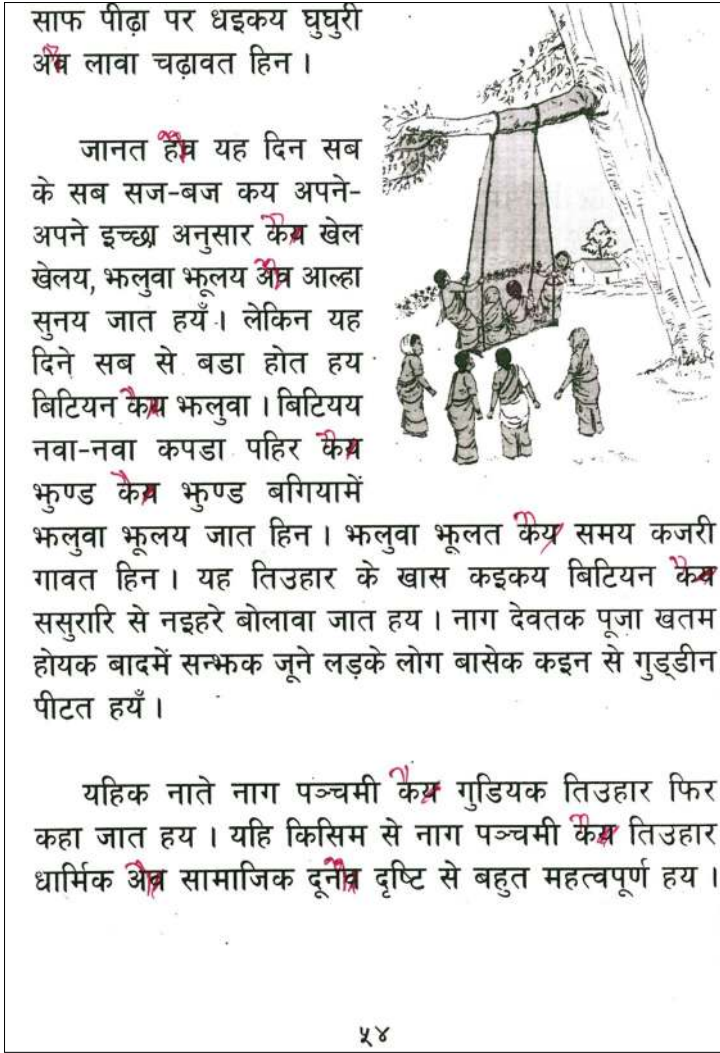 साफ पीढ़ा पर धइकय घुघुरी
औ लावा चढ़ावत हिन ।
जानत हौ यह दिन सब
के सब सज-बज कय अपने-
अपने इच्छा अनुसार कै खेल
खेलय, झलुवा झूलय औ आल्हा
सुनय जात हयँ । लेकिन यह
दिने सब से बडा होत हय
बिटियन कै झलुवा । बिटियय
नवा-नवा कपडा पहिर कै
झुण्ड कै झुण्ड बगियामें
झलुवा झूलय जात हिन । झलुवा झूलत कै समय कजरी
गावत हिन । यह तिउहार के खास कइकय बिटियन कै
ससुरारि से नइहरे बोलावा जात हय । नाग देवतक पूजा खतम
होयक बादमें सन्झक जूने लड़के लोग बासेक कइन से गुड्डीन
पीटत हयँ ।
यहिक नाते नाग पञ्चमी कै गुडियक तिउहार फिर
कहा जात हय । यहि किसिम से नाग पञ्चमी कै तिउहार
धार्मिक औ सामाजिक दूनौ दृष्टि से बहुत महत्वपूर्ण हय ।
५४